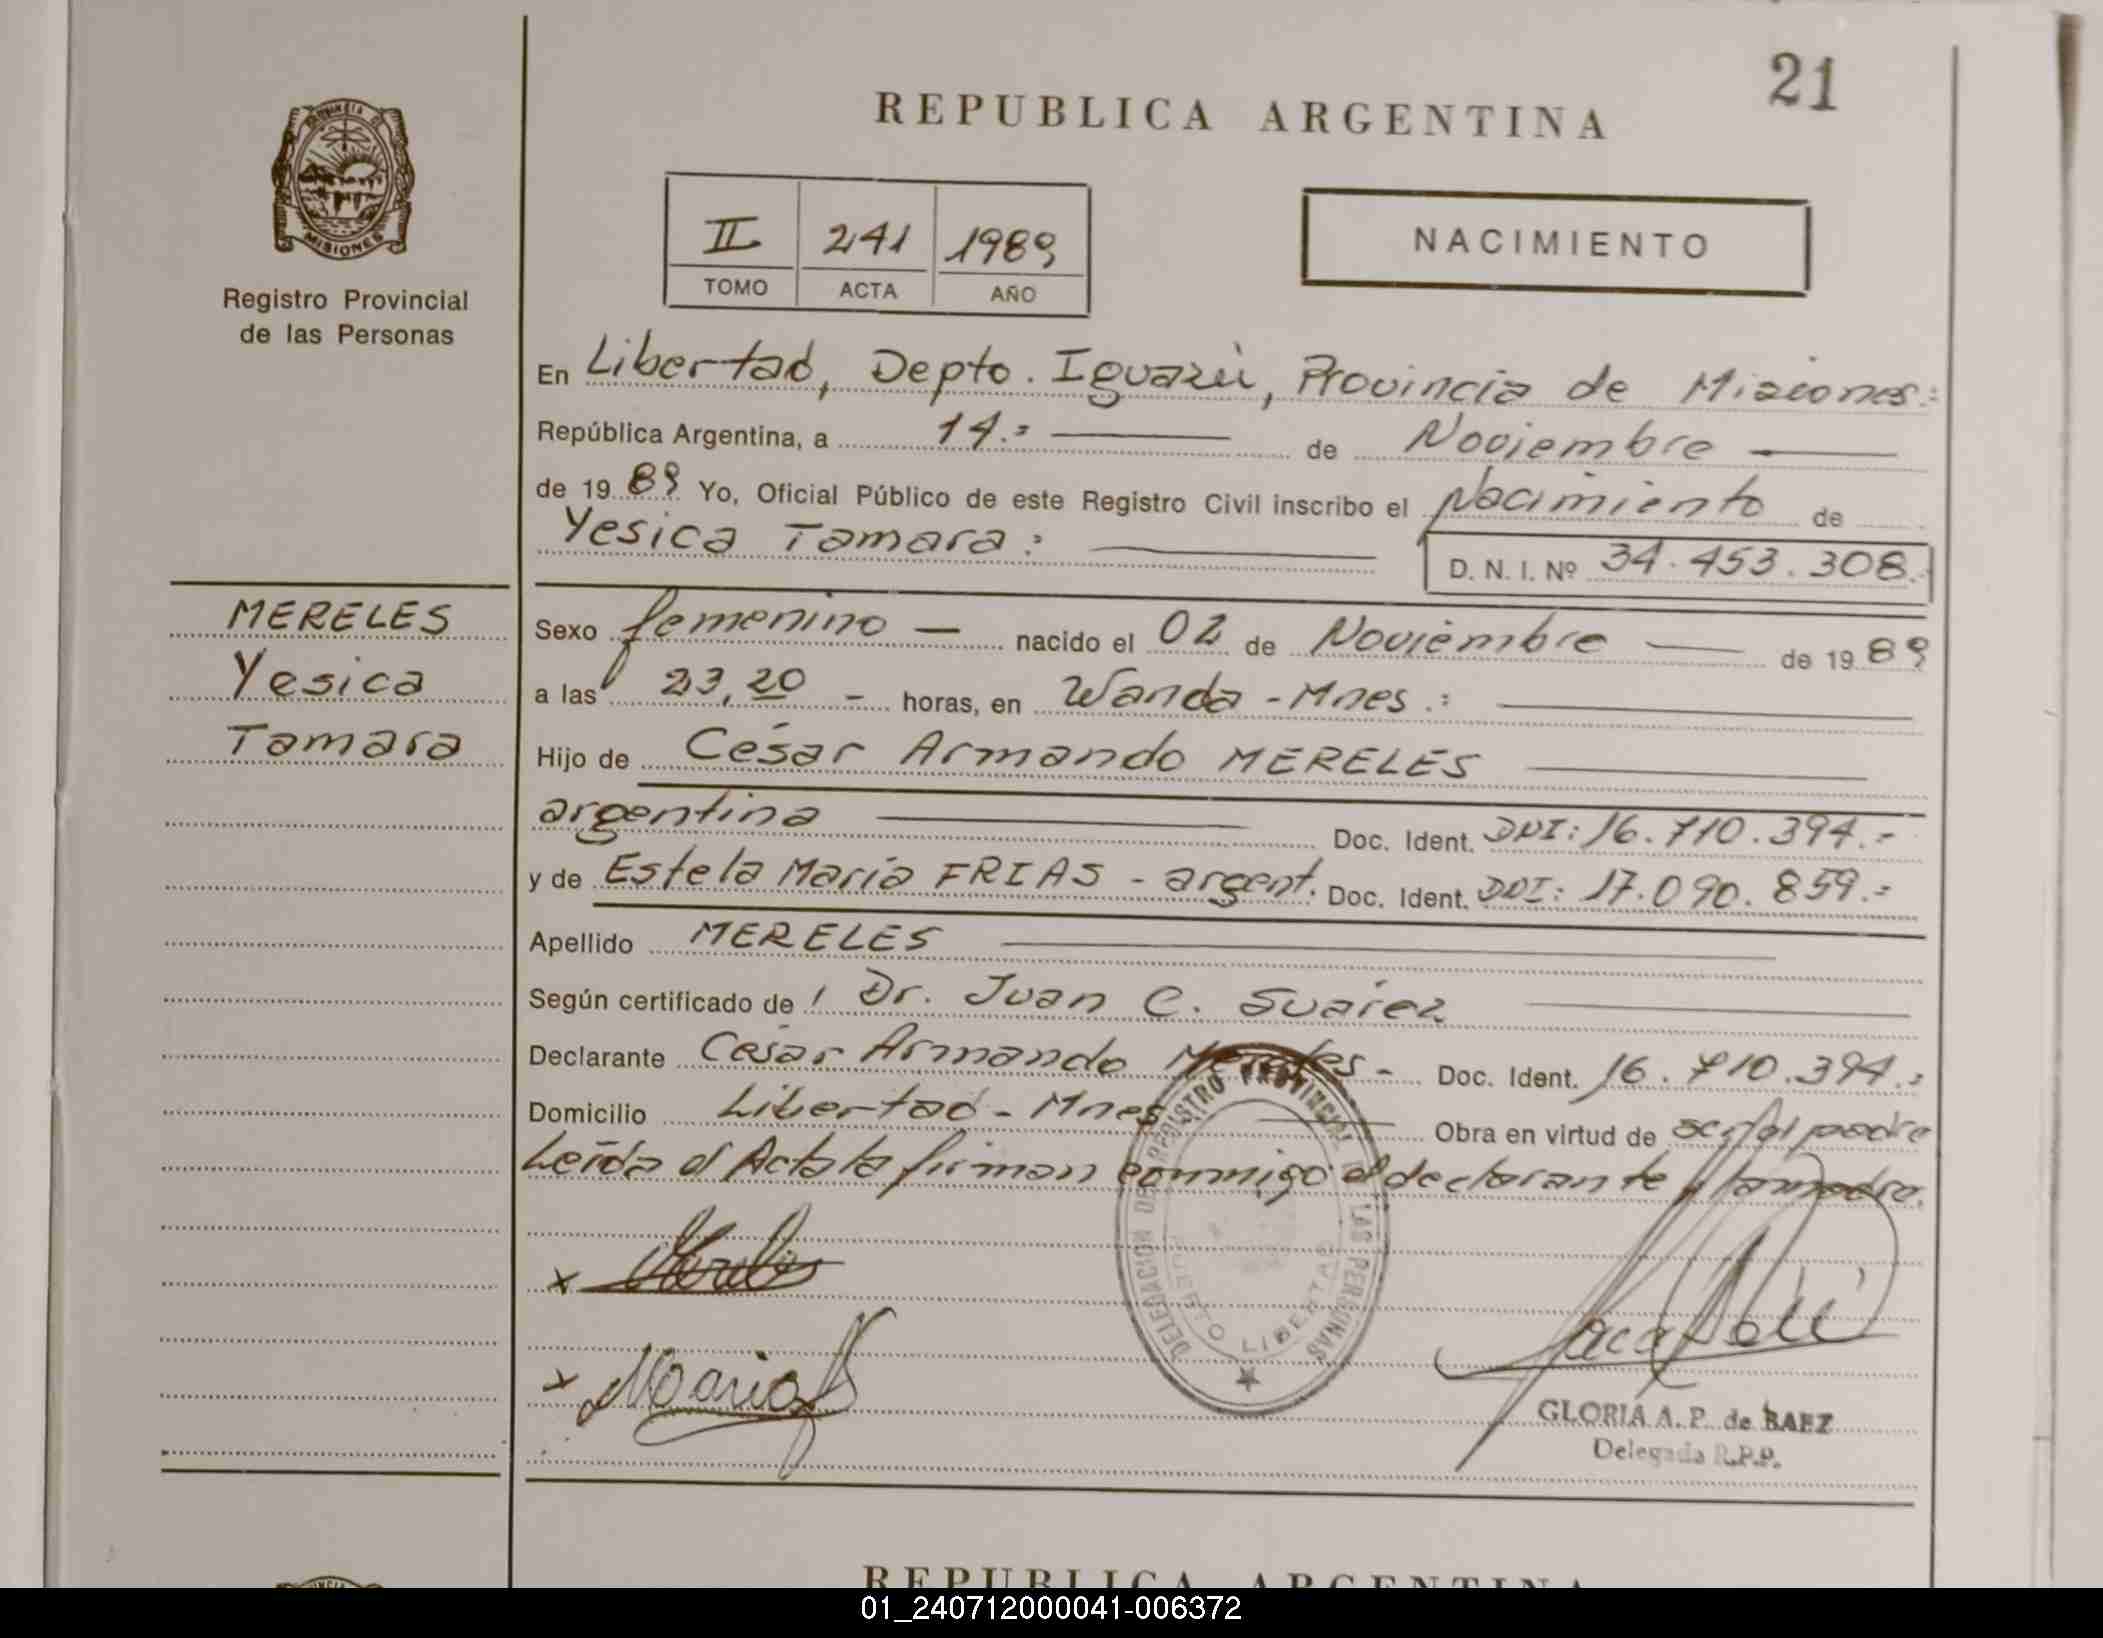 21
REPUBLICA ARGENTINA
PROVINCIA DE MISIONES
Registro Provincial
de las Personas
II 241 1989
TOMO ACTA AÑO
NACIMIENTO
En Libertad, Depto. Iguazú, Provincia de Misiones.=
República Argentina, a 14.= de Noviembre
de 1989 Yo, Oficial Público de este Registro Civil inscribo el Nacimiento de
Yesica Tamara:
D. N. I. Nº 34.453.308.
MERELES
Yesica
Tamara
Sexo femenino — nacido el 02 de Noviembre de 1989
a las 23,20 - horas, en Wanda - Mnes.:
Hijo de César Armando MERELES
argentina Doc. Ident. DNI: 16.710.394.=
y de Estela María FRIAS - argent. Doc. Ident. DNI: 17.090.859.=
Apellido MERELES
Según certificado de Dr. Juan C. Suárez
Declarante César Armando Mereles - Doc. Ident. 16.710.394.=
Domicilio Libertad - Mnes Obra en virtud de ser el padre
Leída el Acta la firman conmigo el declarante y la madre.
DELEGACION DEL REGISTRO PROVINCIAL DE LAS PERSONAS
PUERTO LIBERTAD
x Mereles
x Maria
GLORIA A. P. de BAEZ
Delegada R.P.P.
REPUBLICA ARGENTINA
01_240712000041-006372